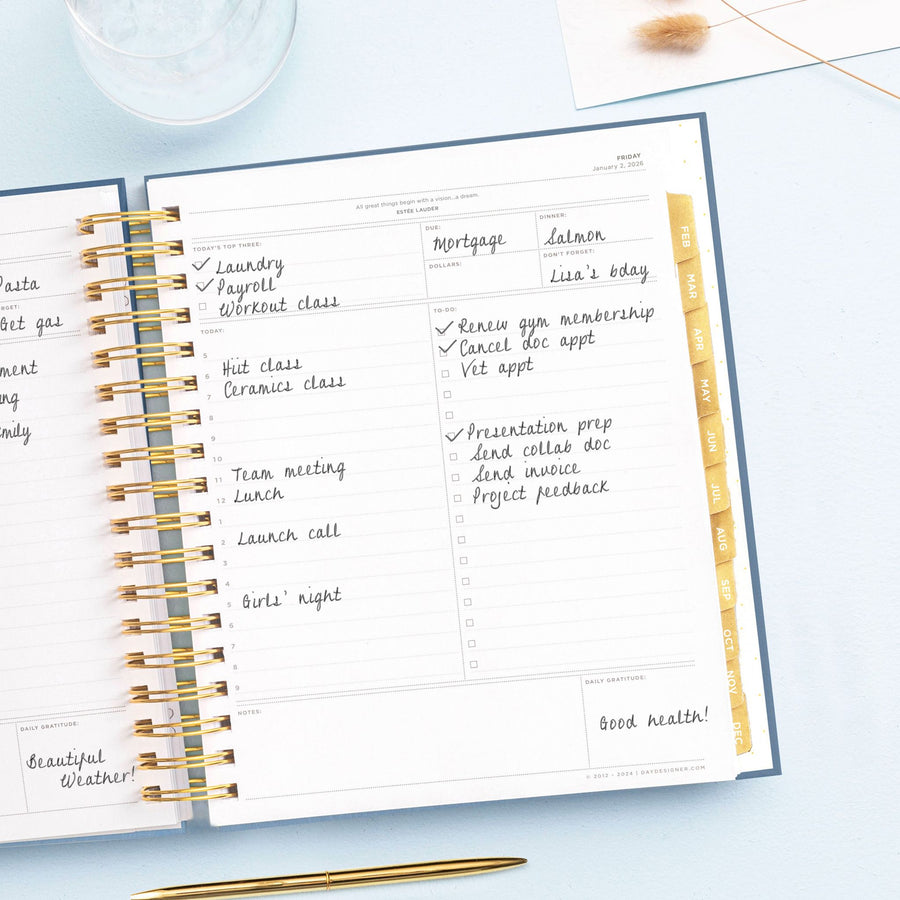 Pasta
Get gas
DAILY GRATITUDE:
Beautiful
Weather!
FRIDAY
January 2, 2026
All great things begin with a vision...a dream.
ESTÉE LAUDER
TODAY'S TOP THREE:
Laundry
Payroll
Workout class
DUE:
Mortgage
DOLLARS:
DINNER:
Salmon
DON'T FORGET:
Lisa's bday
TODAY:
5
6 Hiit class
7 Ceramics class
8
9
10
11 Team meeting
12 Lunch
1
2 Launch call
3
4
5 Girls' night
6
7
8
9
TO-DO:
Renew gym membership
Cancel doc appt
Vet appt
Presentation prep
Send collab doc
Send invoice
Project feedback
NOTES:
DAILY GRATITUDE:
Good health!
© 2012 - 2024 | DAYDESIGNER.COM
FEB
MAR
APR
MAY
JUN
JUL
AUG
SEP
OCT
NOV
DEC